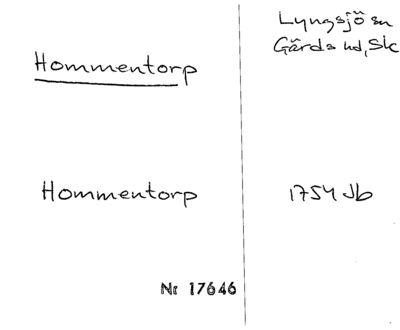 Lyngsjö sn
Gärds hd, Sk
Hommentorp
Hommentorp
1754 Jb
Nr 17646